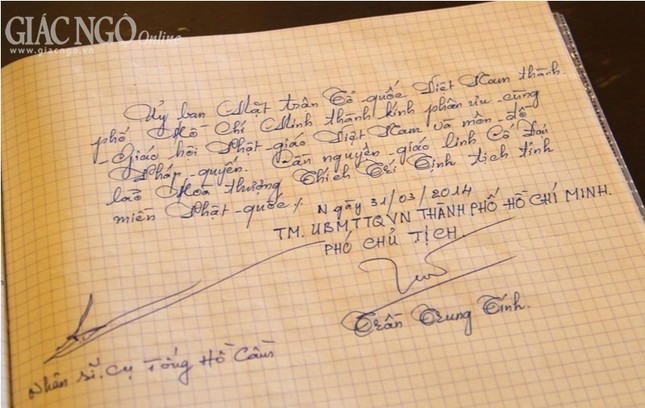 GIÁC NGỘ Online
www.giacngo.vn
Ủy ban Mặt trận Tổ quốc Việt Nam thành
phố Hồ Chí Minh thành kính phân ưu cùng
Giáo hội Phật giáo Việt Nam và môn đồ
Pháp quyến.
nguyện giác linh Cố Đại
lão Hòa thượng Thích Trí Tịnh tịch tịnh
miền Phật quốc/.
Ngày 31/03/2014
TM. UBMTTQVN THÀNH PHỐ HỒ CHÍ MINH.
PHÓ CHỦ TỊCH.
Trần Trung Tính.
Nhân sĩ. Cụ Tống Hồ Cầm